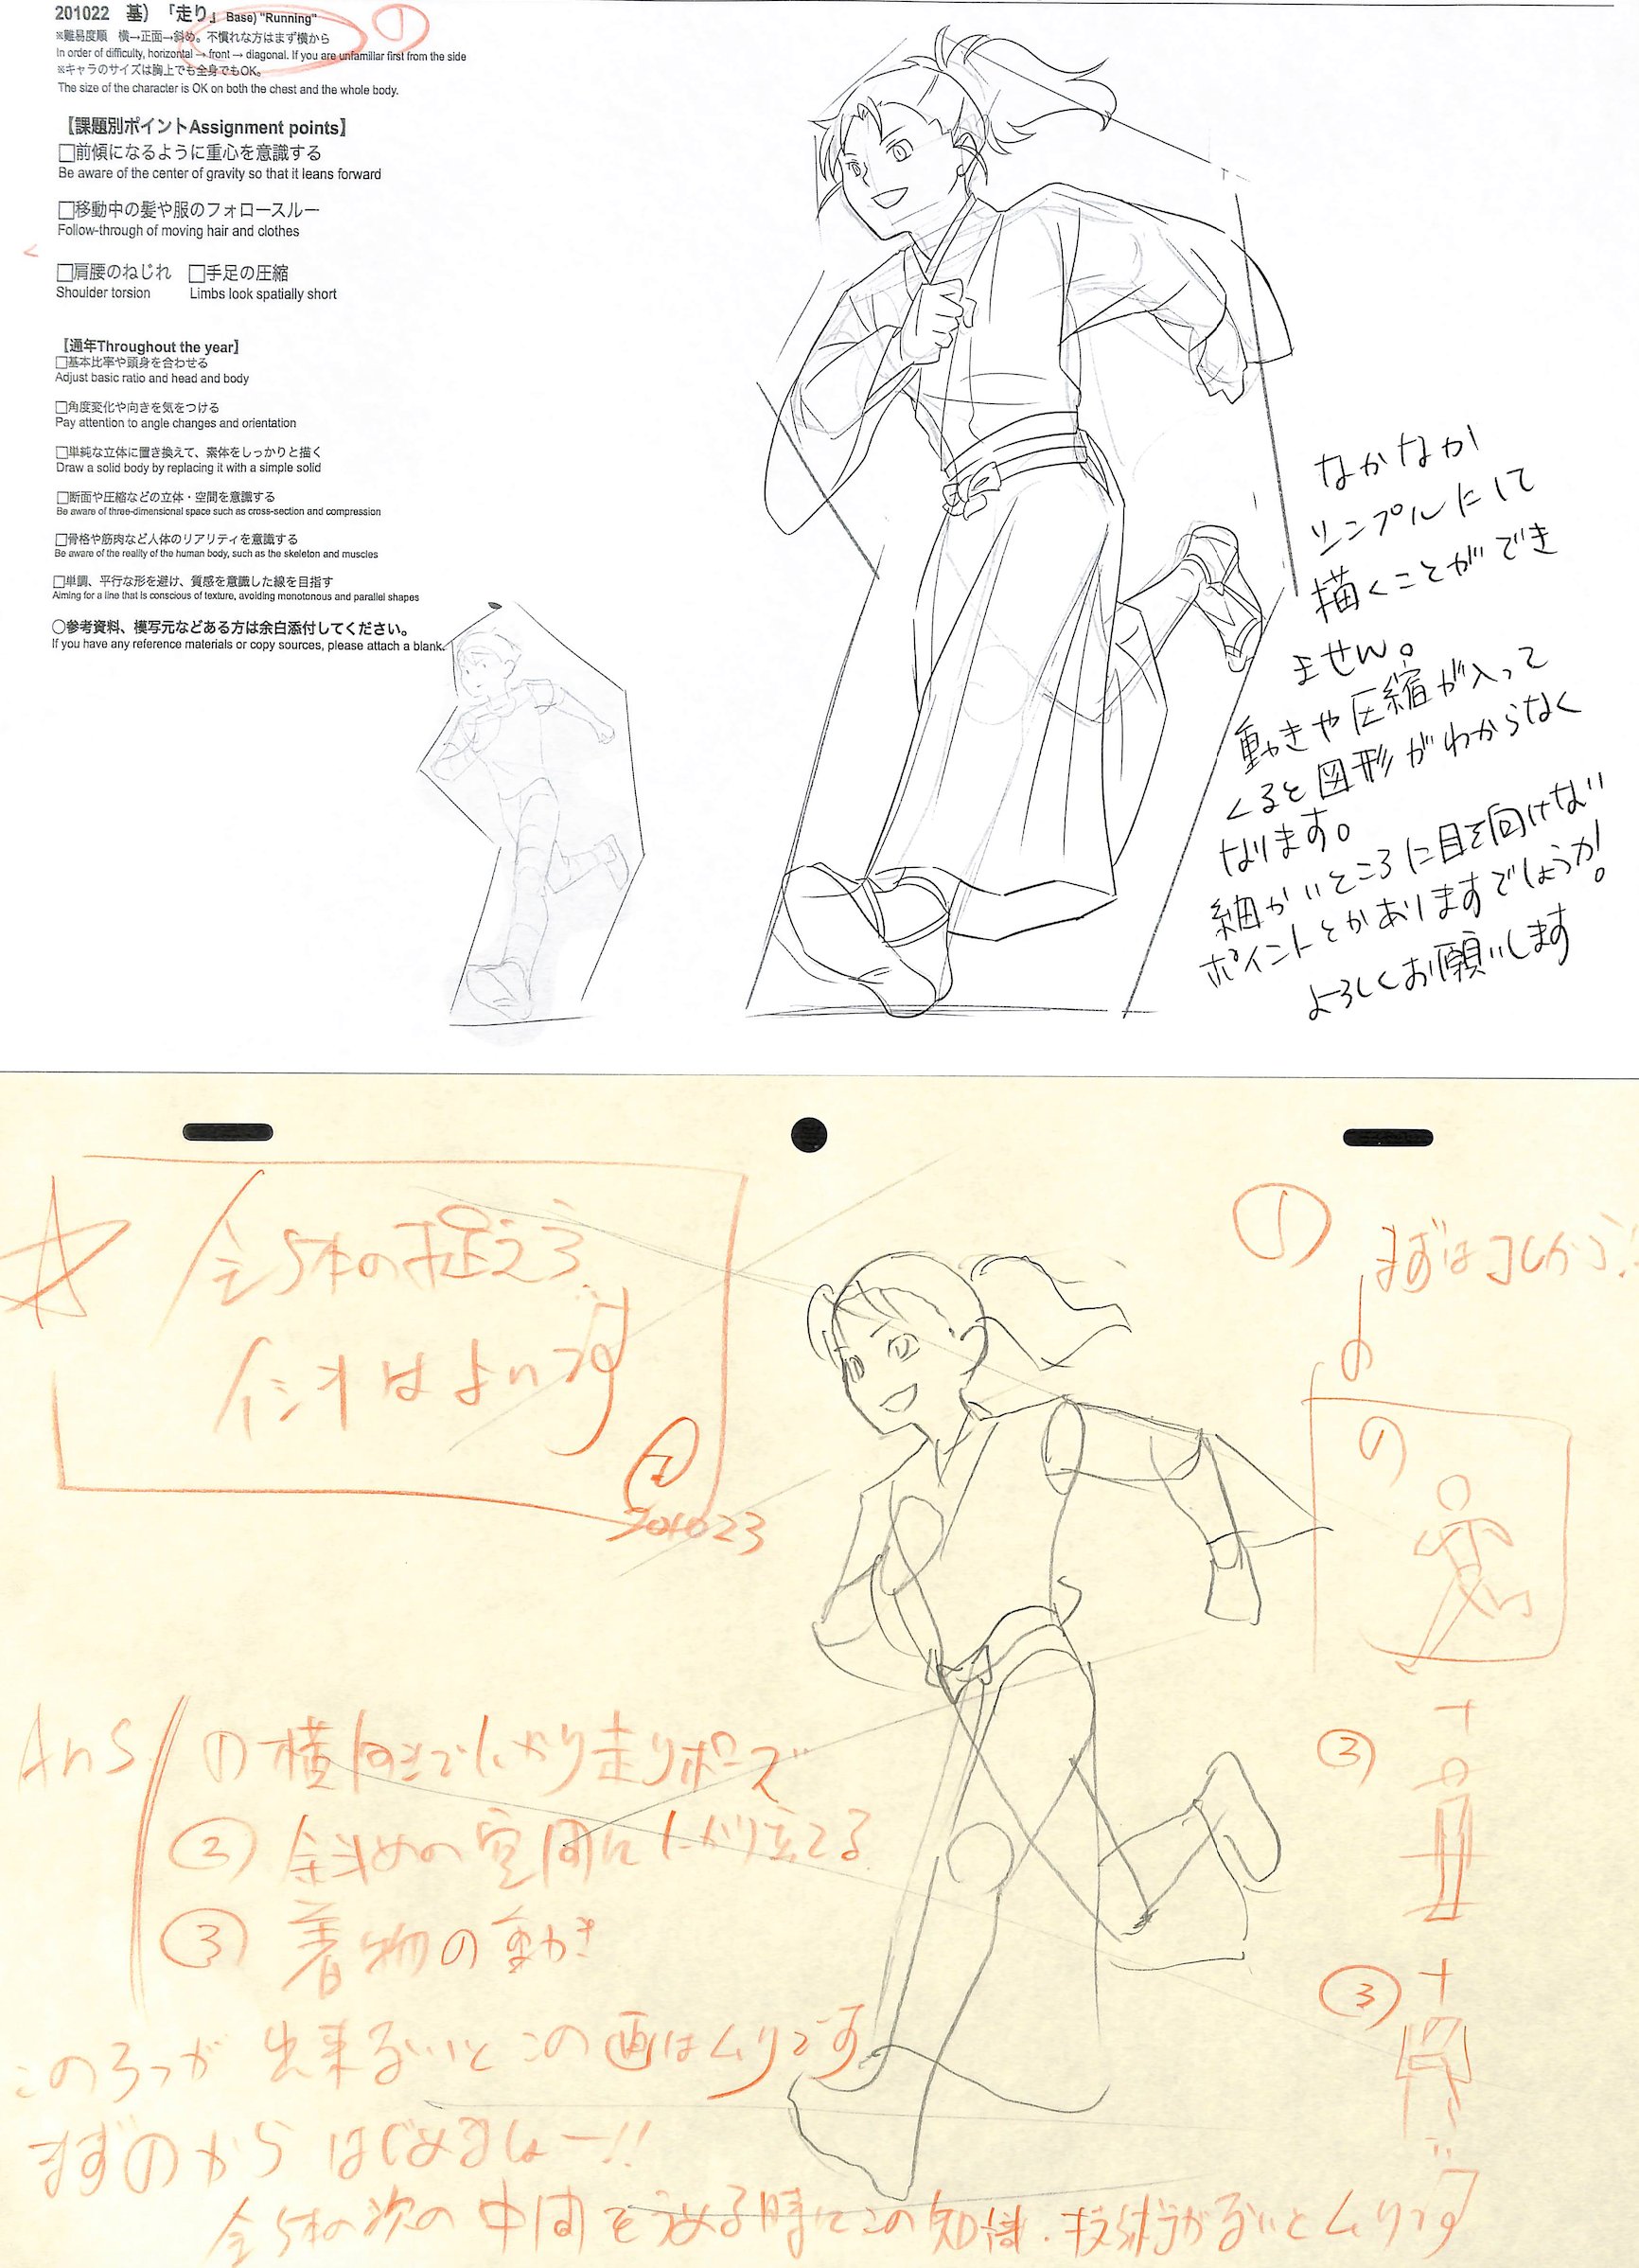 201022 基）「走り」 Base) "Running"
①
※難易度順 横→正面→斜め。不慣れな方はまず横から
In order of difficulty, horizontal → front → diagonal. If you are unfamiliar first from the side
※キャラのサイズは胸上でも全身でもOK。
The size of the character is OK on both the chest and the whole body.
【課題別ポイントAssignment points】
□前傾になるように重心を意識する
Be aware of the center of gravity so that it leans forward
□移動中の髪や服のフォロースルー
Follow-through of moving hair and clothes
□肩腰のねじれ □手足の圧縮
Shoulder torsion Limbs look spatially short
【通年Throughout the year】
□基本比率や頭身を合わせる
Adjust basic ratio and head and body
□角度変化や向きを気をつける
Pay attention to angle changes and orientation
□単純な立体に置き換えて、素体をしっかりと描く
Draw a solid body by replacing it with a simple solid
□断面や圧縮などの立体・空間を意識する
Be aware of three-dimensional space such as cross-section and compression
□骨格や筋肉など人体のリアリティを意識する
Be aware of the reality of the human body, such as the skeleton and muscles
□単調、平行な形を避け、質感を意識した線を目指す
Aiming for a line that is conscious of texture, avoiding monotonous and parallel shapes
○参考資料、模写元などある方は余白添付してください。
If you have any reference materials or copy sources, please attach a blank.
なかなか
シンプルにして
描くことができ
ません。
動きや圧縮が入って
くると図形がわからなく
なります。
細かいところに目を向けない
ポイントとかありますでしょうか。
よろしくお願いします
☆ 全体の捉える
はよいです
201023
① まずはコレから!
①
③
+
③
Ans ① 横向きでしっかり走りポーズ
② 斜めの空間にしっかり立てる
③ 着物の動き
この3つが出来ないとこの画はムリです
まず①からはじめましょー!!
全体の次の中間をうめる時にこの知識・技術がないとムリです